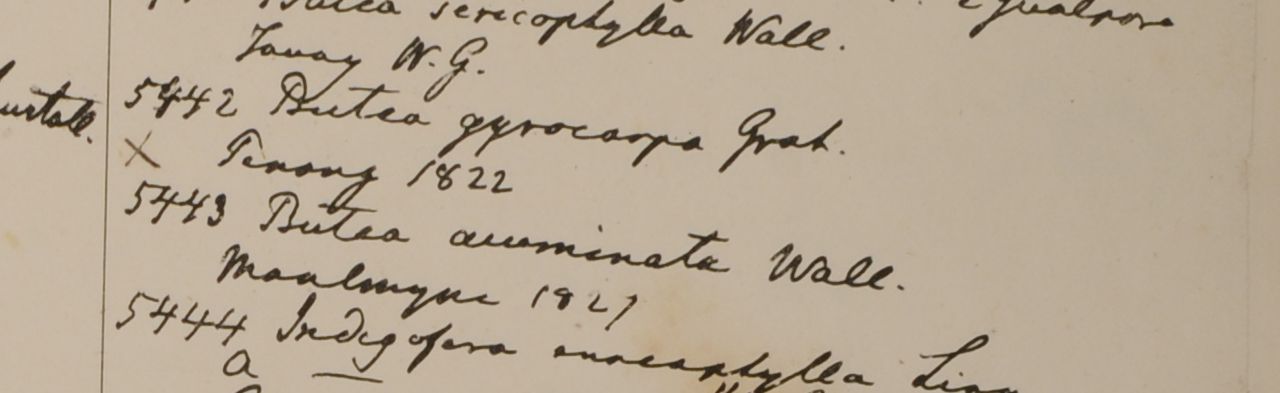 Butea sericophylla Wall.
Tavoy W.G.
5442 Butea gyrocarpa Grah.
× Penang 1822
5443 Butea acuminata Wall.
Moulmyne 1827
5444 Indigofera enneaphylla Linn
a —